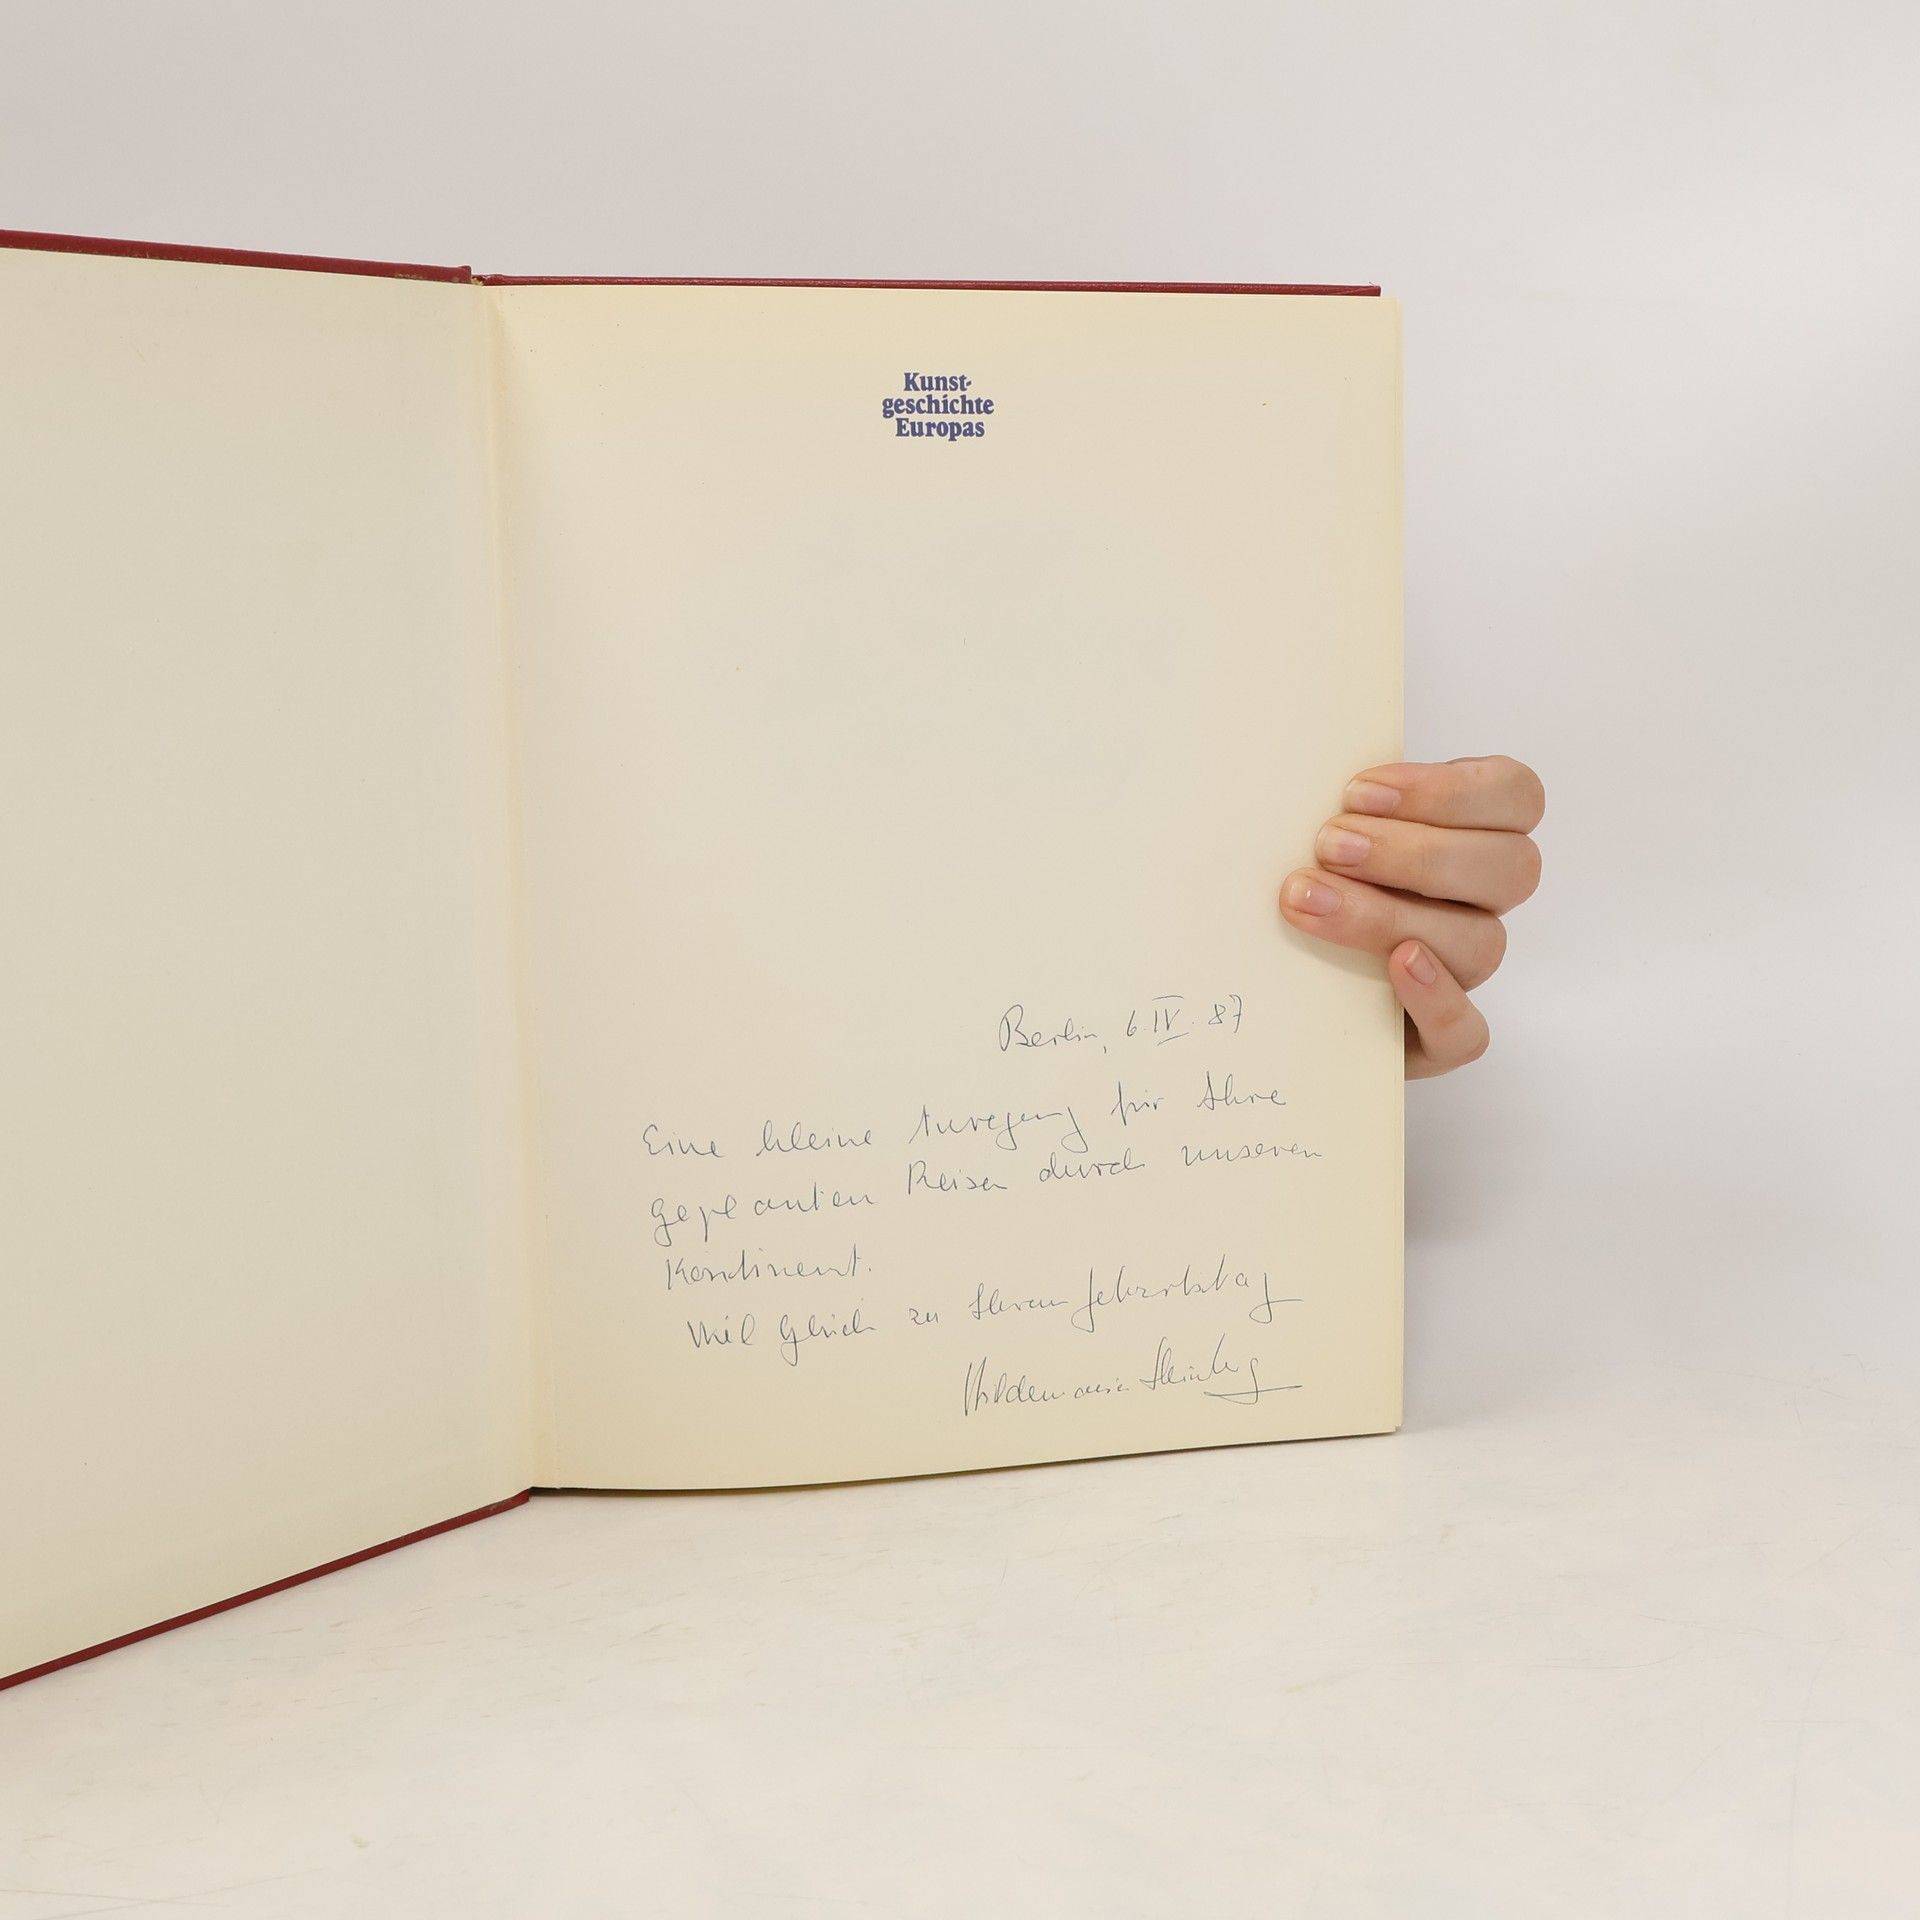 Kunst-
geschichte
Europas
Berlin, 6.IV.87
Eine kleine Anregung für Ihre
geplanten Reisen durch unseren
Kontinent.
Viel Glück zu Ihrem Geburtstag
Hildemarie